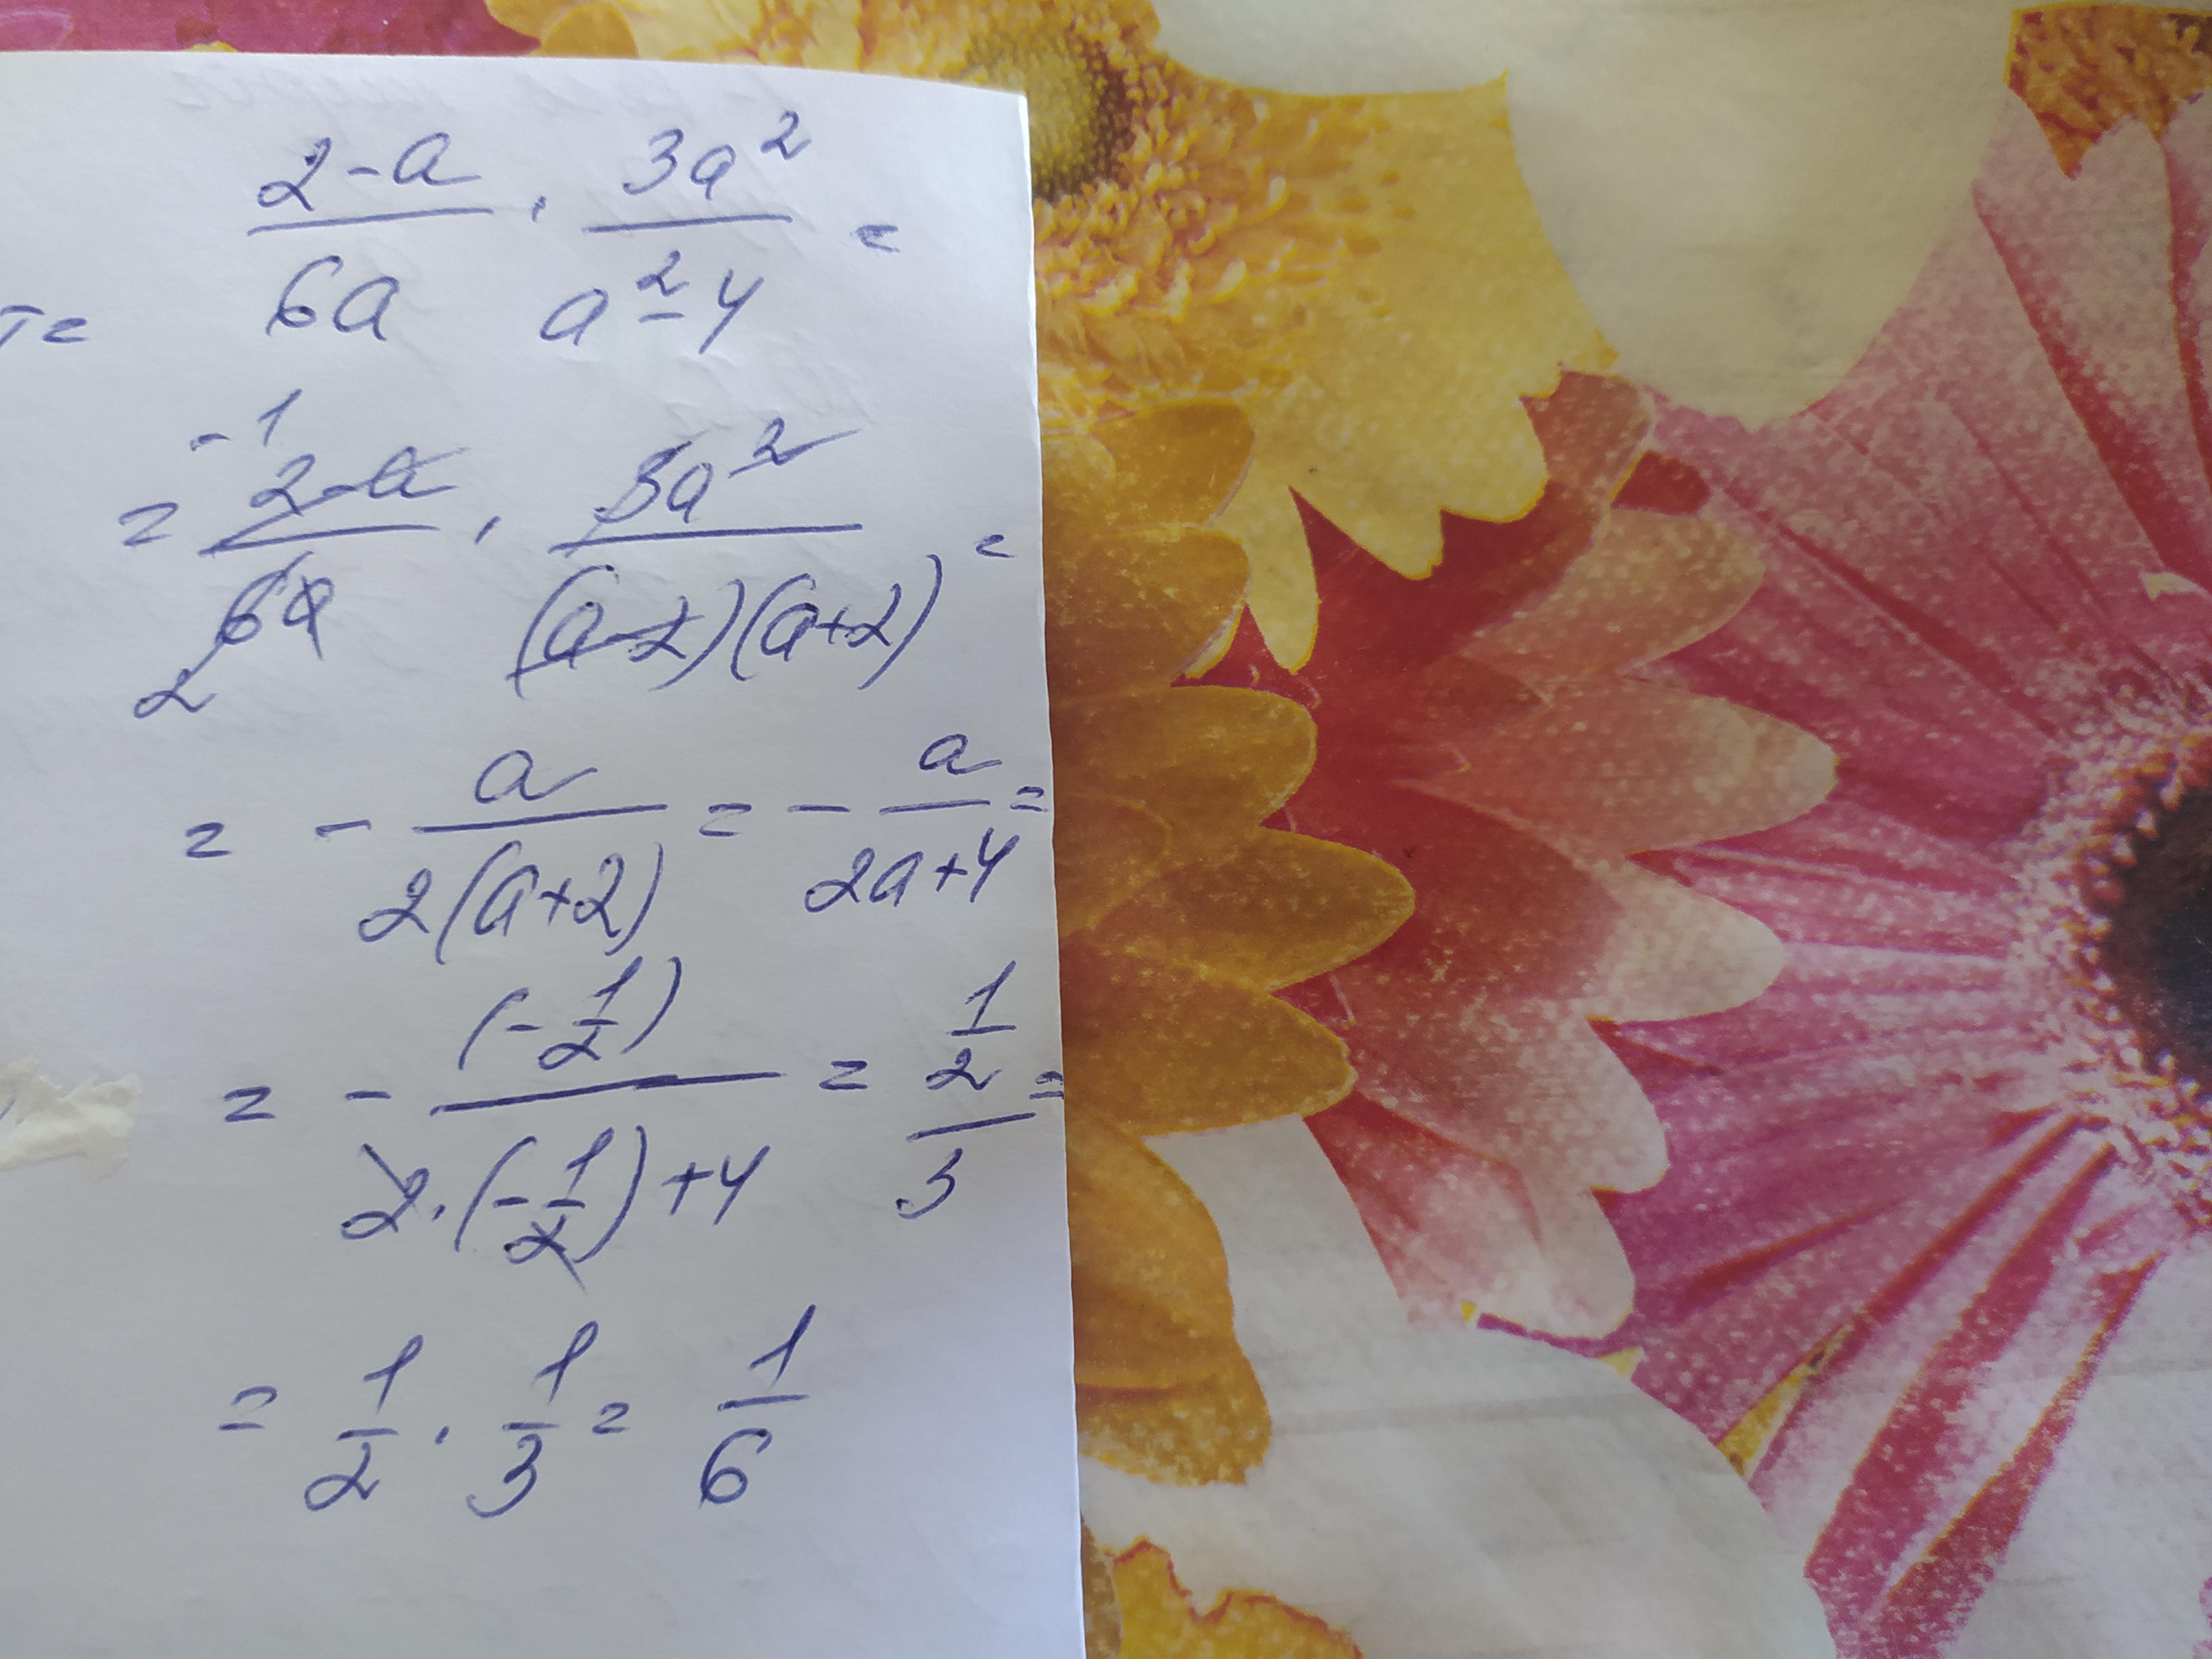 (2-a)/(6a) · (3a²)/(a²-4) =
= (2-a)/(6a) · (3a²)/((a-2)(a+2)) =
= - a/(2(a+2)) = - a/(2a+4) =
= - (-1/2)/(2·(-1/2)+4) = (1/2)/3 =
= 1/2 · 1/3 = 1/6